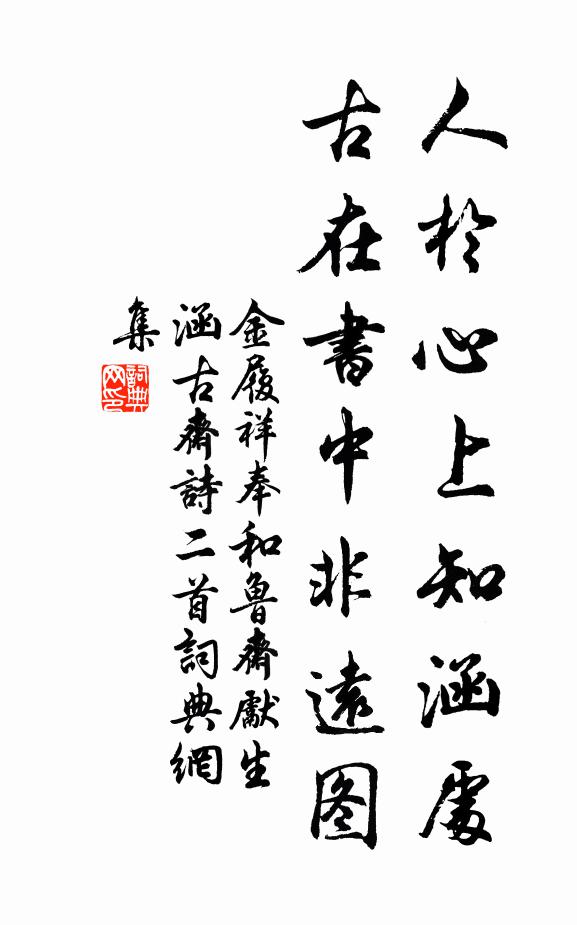 人於心上知涵處
古在書中非遠图
金履祥奉和魯齋獻生
涵古齋詩二首詞典網
集
詞典
网印